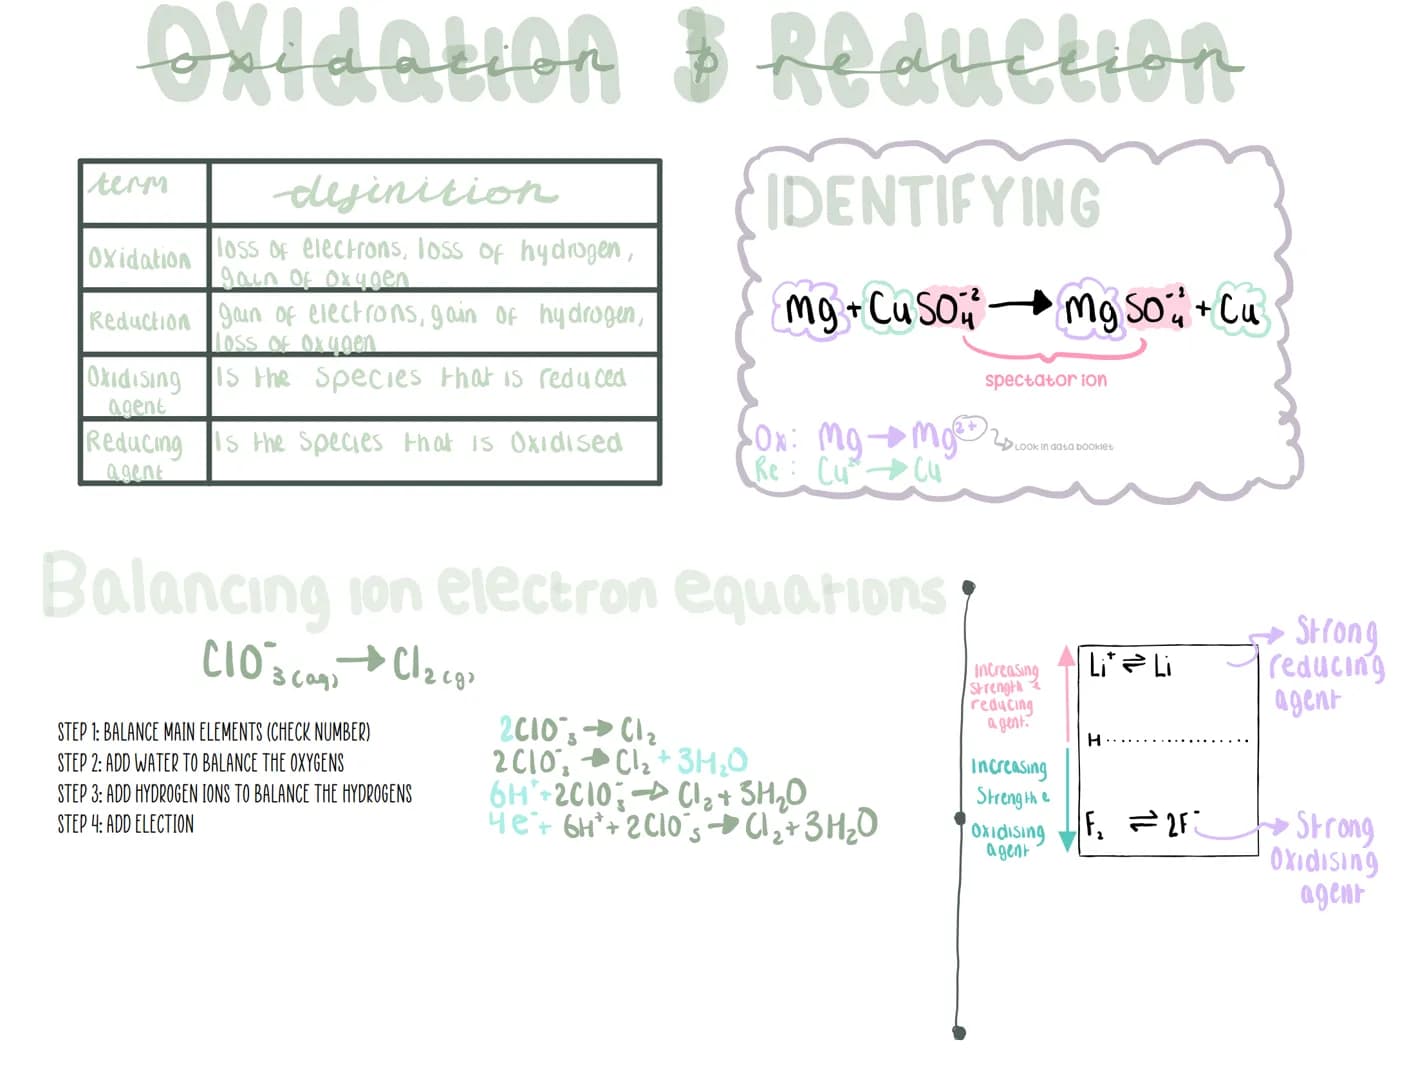 Oxidation & Reduction
oxidation & reduction
term definition
Oxidation loss of electrons, loss of hydrogen,
gain of oxygen
Reduction gain of electrons, gain of hydrogen,
loss of oxygen
Oxidising Is the species that is reduced
agent
Reducing Is the species that is Oxidised
agent
IDENTIFYING
Mg + CuSO₄⁻² → MgSO₄⁻² + Cu
spectator ion
Ox: Mg → Mg²⁺ Look in data booklet
Re: Cu²⁺ → Cu
Balancing ion electron equations
ClO⁻₃(aq) → Cl₂(g)
STEP 1: BALANCE MAIN ELEMENTS (CHECK NUMBER)
STEP 2: ADD WATER TO BALANCE THE OXYGENS
STEP 3: ADD HYDROGEN IONS TO BALANCE THE HYDROGENS
STEP 4: ADD ELECTION
2ClO⁻₃ → Cl₂
2ClO⁻₃ → Cl₂ + 3H₂O
6H⁺ + 2ClO⁻₃ → Cl₂ + 3H₂O
4e⁻ + 6H⁺ + 2ClO⁻₃ → Cl₂ + 3H₂O
Increasing
strength
reducing
agent.
Increasing
Strength
Oxidising
agent
Li⁺ ⇌ Li
H
F₂ ⇌ 2F⁻
Strong
reducing
agent
Strong
Oxidising
agent